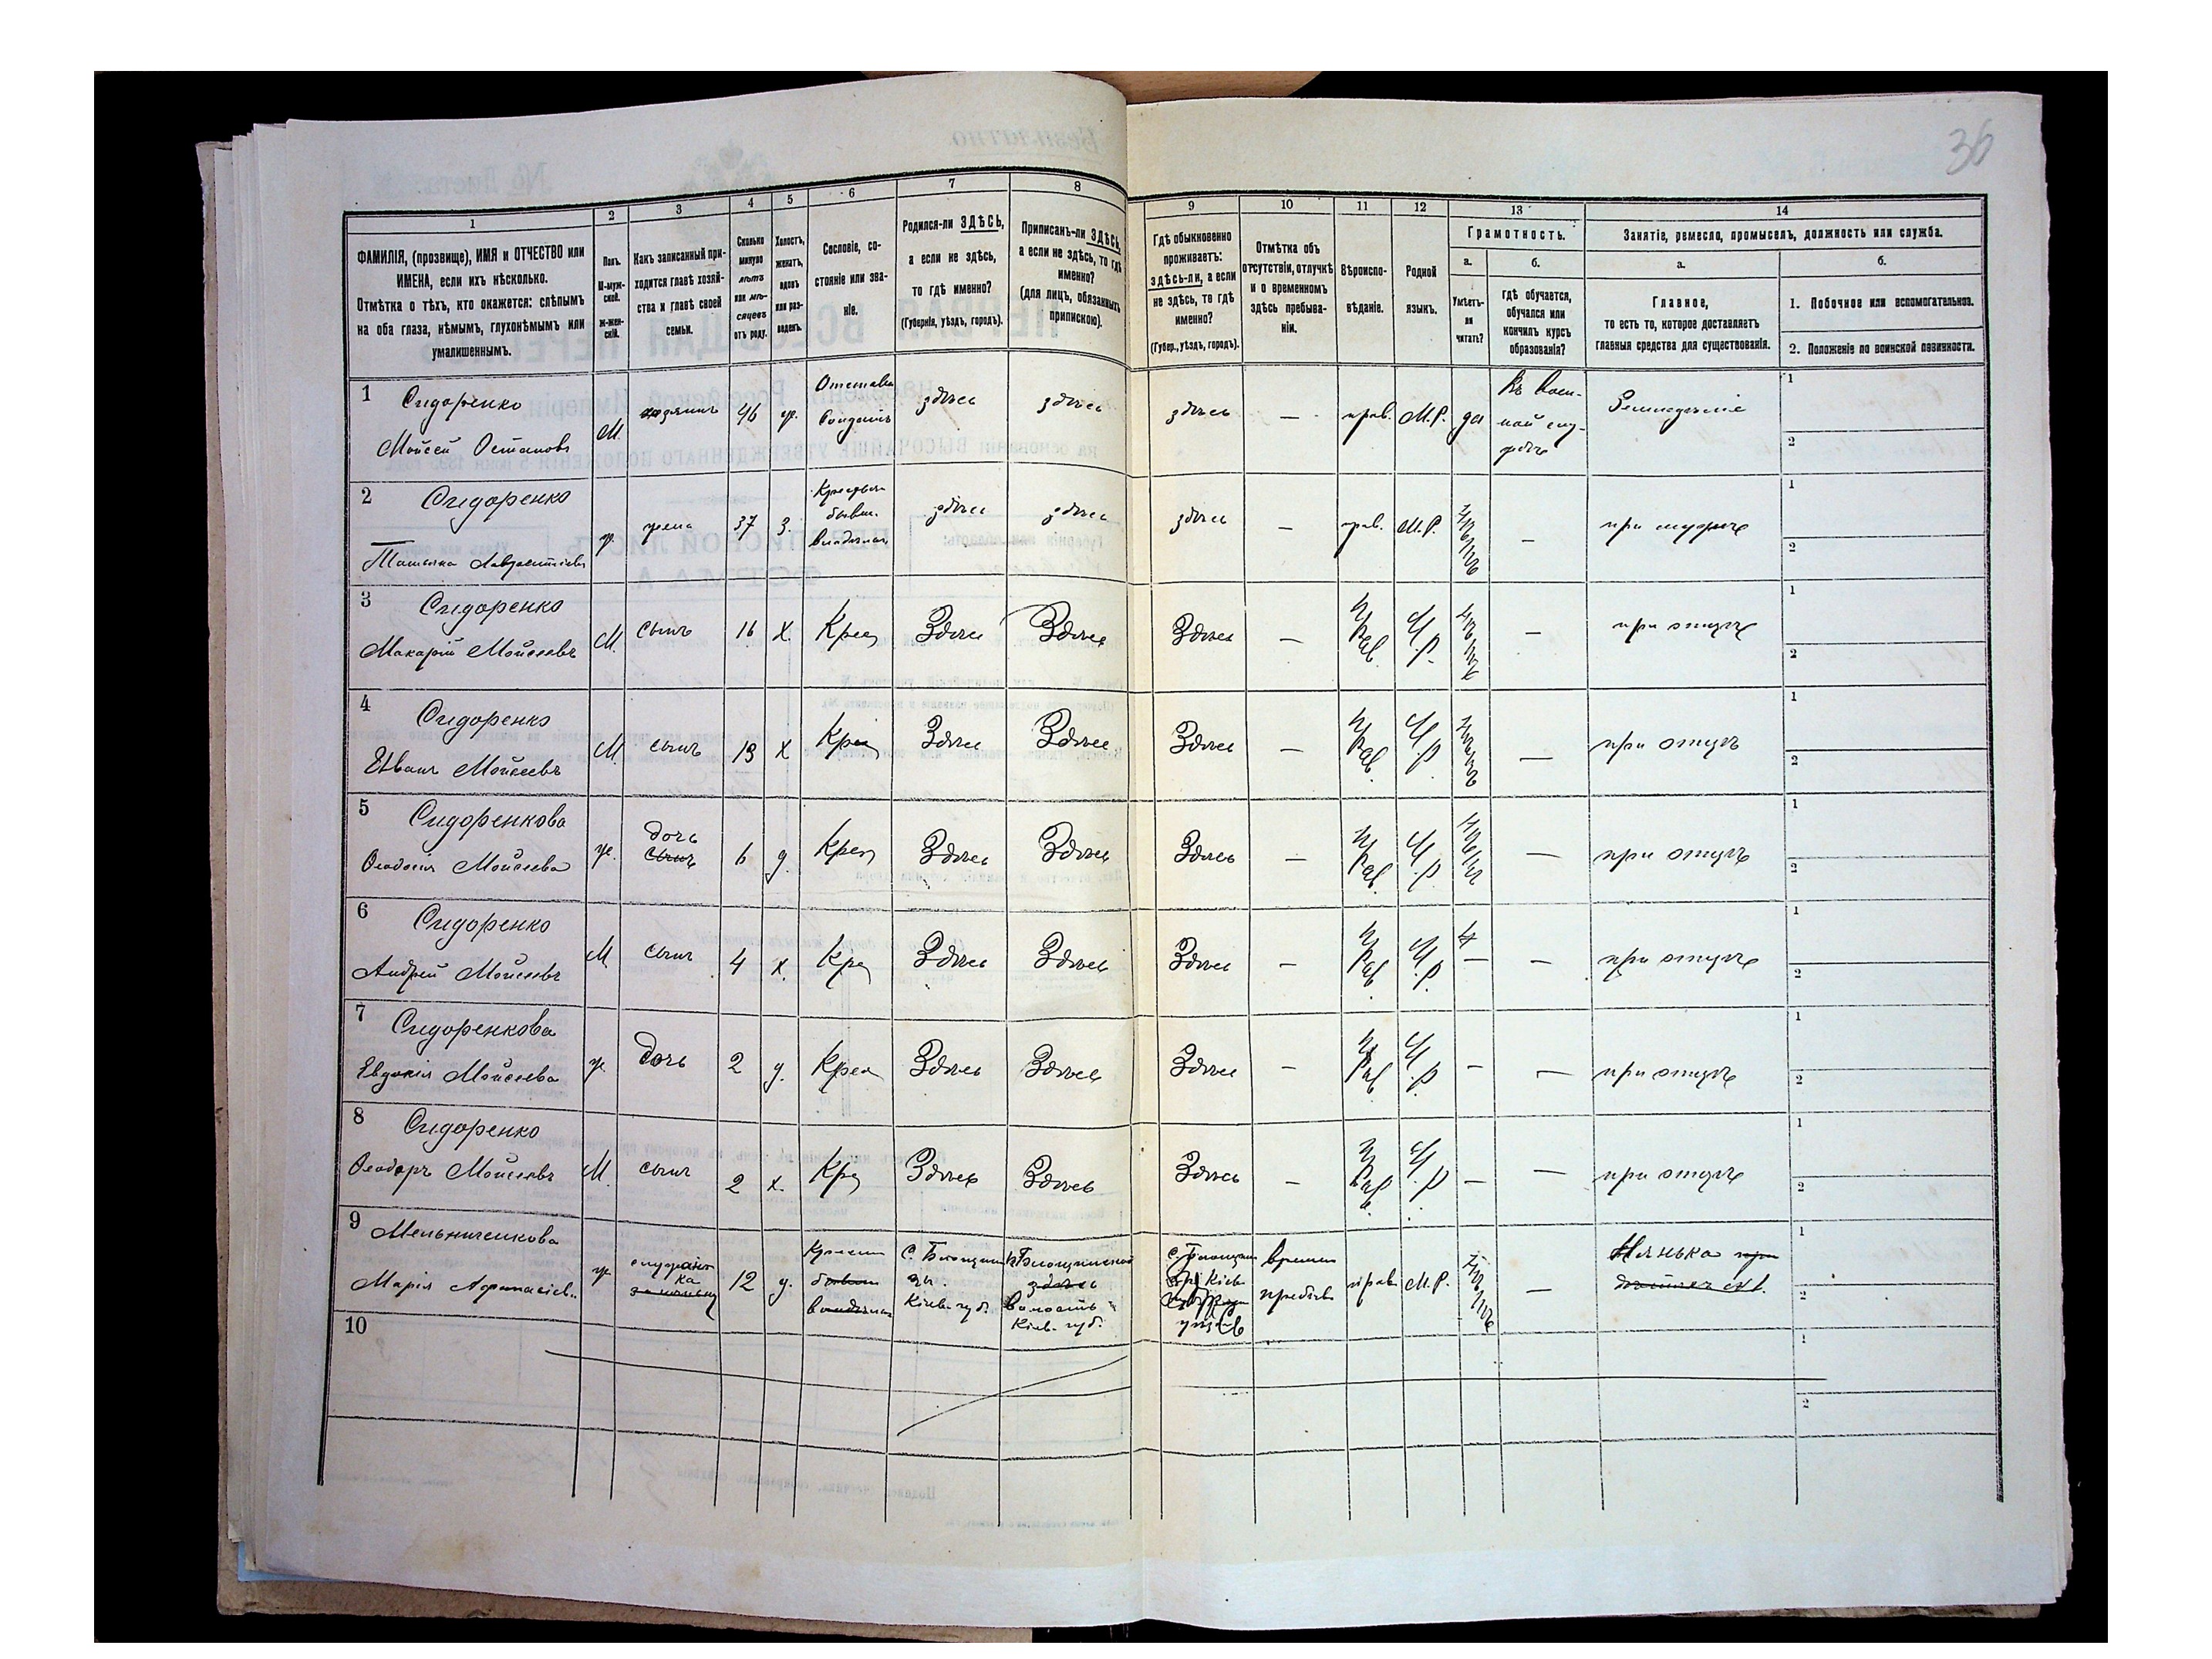 36
1
2
3
4
5
6
7
8
9
10
11
12
13
14
ФАМИЛІЯ, (прозвище), ИМЯ и ОТЧЕСТВО или
ИМЕНА, если ихъ нѣсколько.
Отмѣтка о тѣхъ, кто окажется: слѣпымъ
на оба глаза, нѣмымъ, глухонѣмымъ или
умалишеннымъ.
Полъ.
М-муж-
ской.
Ж-жен-
скій.
Какъ записанный при-
ходится главѣ хозяй-
ства и главѣ своей
семьи.
Сколько
минуло
лѣтъ
или мѣ-
сяцевъ
отъ роду.
Холостъ,
женатъ,
вдовъ
или раз-
веденъ.
Сословіе, со-
стояніе или зва-
ніе.
Родился-ли ЗДѢСЬ,
а если не здѣсь,
то гдѣ именно?
(Губернія, уѣздъ, городъ).
Приписанъ-ли ЗДѢСЬ,
а если не здѣсь, то гдѣ
именно?
(для лицъ, обязанныхъ
припискою).
Гдѣ обыкновенно
проживаетъ:
здѣсь-ли, а если
не здѣсь, то гдѣ
именно?
(Губер., уѣздъ, городъ).
Отмѣтка объ
отсутствіи, отлучкѣ
и о временномъ
здѣсь пребыва-
ніи.
Вѣроиспо-
вѣданіе.
Родной
языкъ.
Грамотность.
а.
Умѣетъ-
ли
читать?
б.
гдѣ обучается,
обучался или
кончилъ курсъ
образованія?
Занятіе, ремесло, промыселъ, должность или служба.
а.
Главное,
то есть то, которое доставляетъ
главныя средства для существованія.
б.
1. Побочное или вспомогательное.
2. Положеніе по воинской повинности.
1 Сидоренко
Мойсей Остаповъ
М. хозяинъ 46 ж. Отставн. Солдатъ здѣсь здѣсь здѣсь — прав. М.Р. да Въ воен-
ной слу-
жбѣ
Земледѣліе
1
2
2 Сидоренко
Татьяна Лаврентіева
ж. жена 37 З. Крестьян. бывш. владѣльч. здѣсь здѣсь здѣсь — прав. М.Р. нѣтъ — при мужѣ
1
2
3 Сидоренко
Макарій Мойсеевъ
М. сынъ 16 Х. Крест Здѣсь Здѣсь Здѣсь — Прав. М.Р. нѣтъ — при отцѣ
1
2
4 Сидоренко
Иванъ Мойсеевъ
М. сынъ 13 Х Крест Здѣсь Здѣсь Здѣсь — Прав. М.Р. — при отцѣ
1
2
5 Сидоренкова
Феодосія Мойсеева
ж. дочь сынъ 6 д. Крест Здѣсь Здѣсь Здѣсь — Прав. М.Р. нѣтъ — при отцѣ
1
2
6 Сидоренко
Андрей Мойсеевъ
М. сынъ 4 х. Кре Здѣсь Здѣсь Здѣсь — Прав. М.Р. — — при отцѣ
1
2
7 Сидоренкова
Евдокія Мойсеева
ж. дочь 2 д. Крест Здѣсь Здѣсь Здѣсь — Прав. М.Р. — — при отцѣ
1
2
8 Сидоренко
Феодоръ Мойсеевъ
М. сынъ 2 х. Кре Здѣсь Здѣсь Здѣсь — Прав. М.Р. — — при отцѣ
1
2
9 Мельниченкова
Марія Афанасіев.
ж. 12 д. Крестьян бывш владѣльч
Кіев. губ.
здѣсь
волость
Кіев. губ.
Кіев.
времен
пребыв
прав. М.Р. нѣтъ — Нянька при
1
2
10
1
2